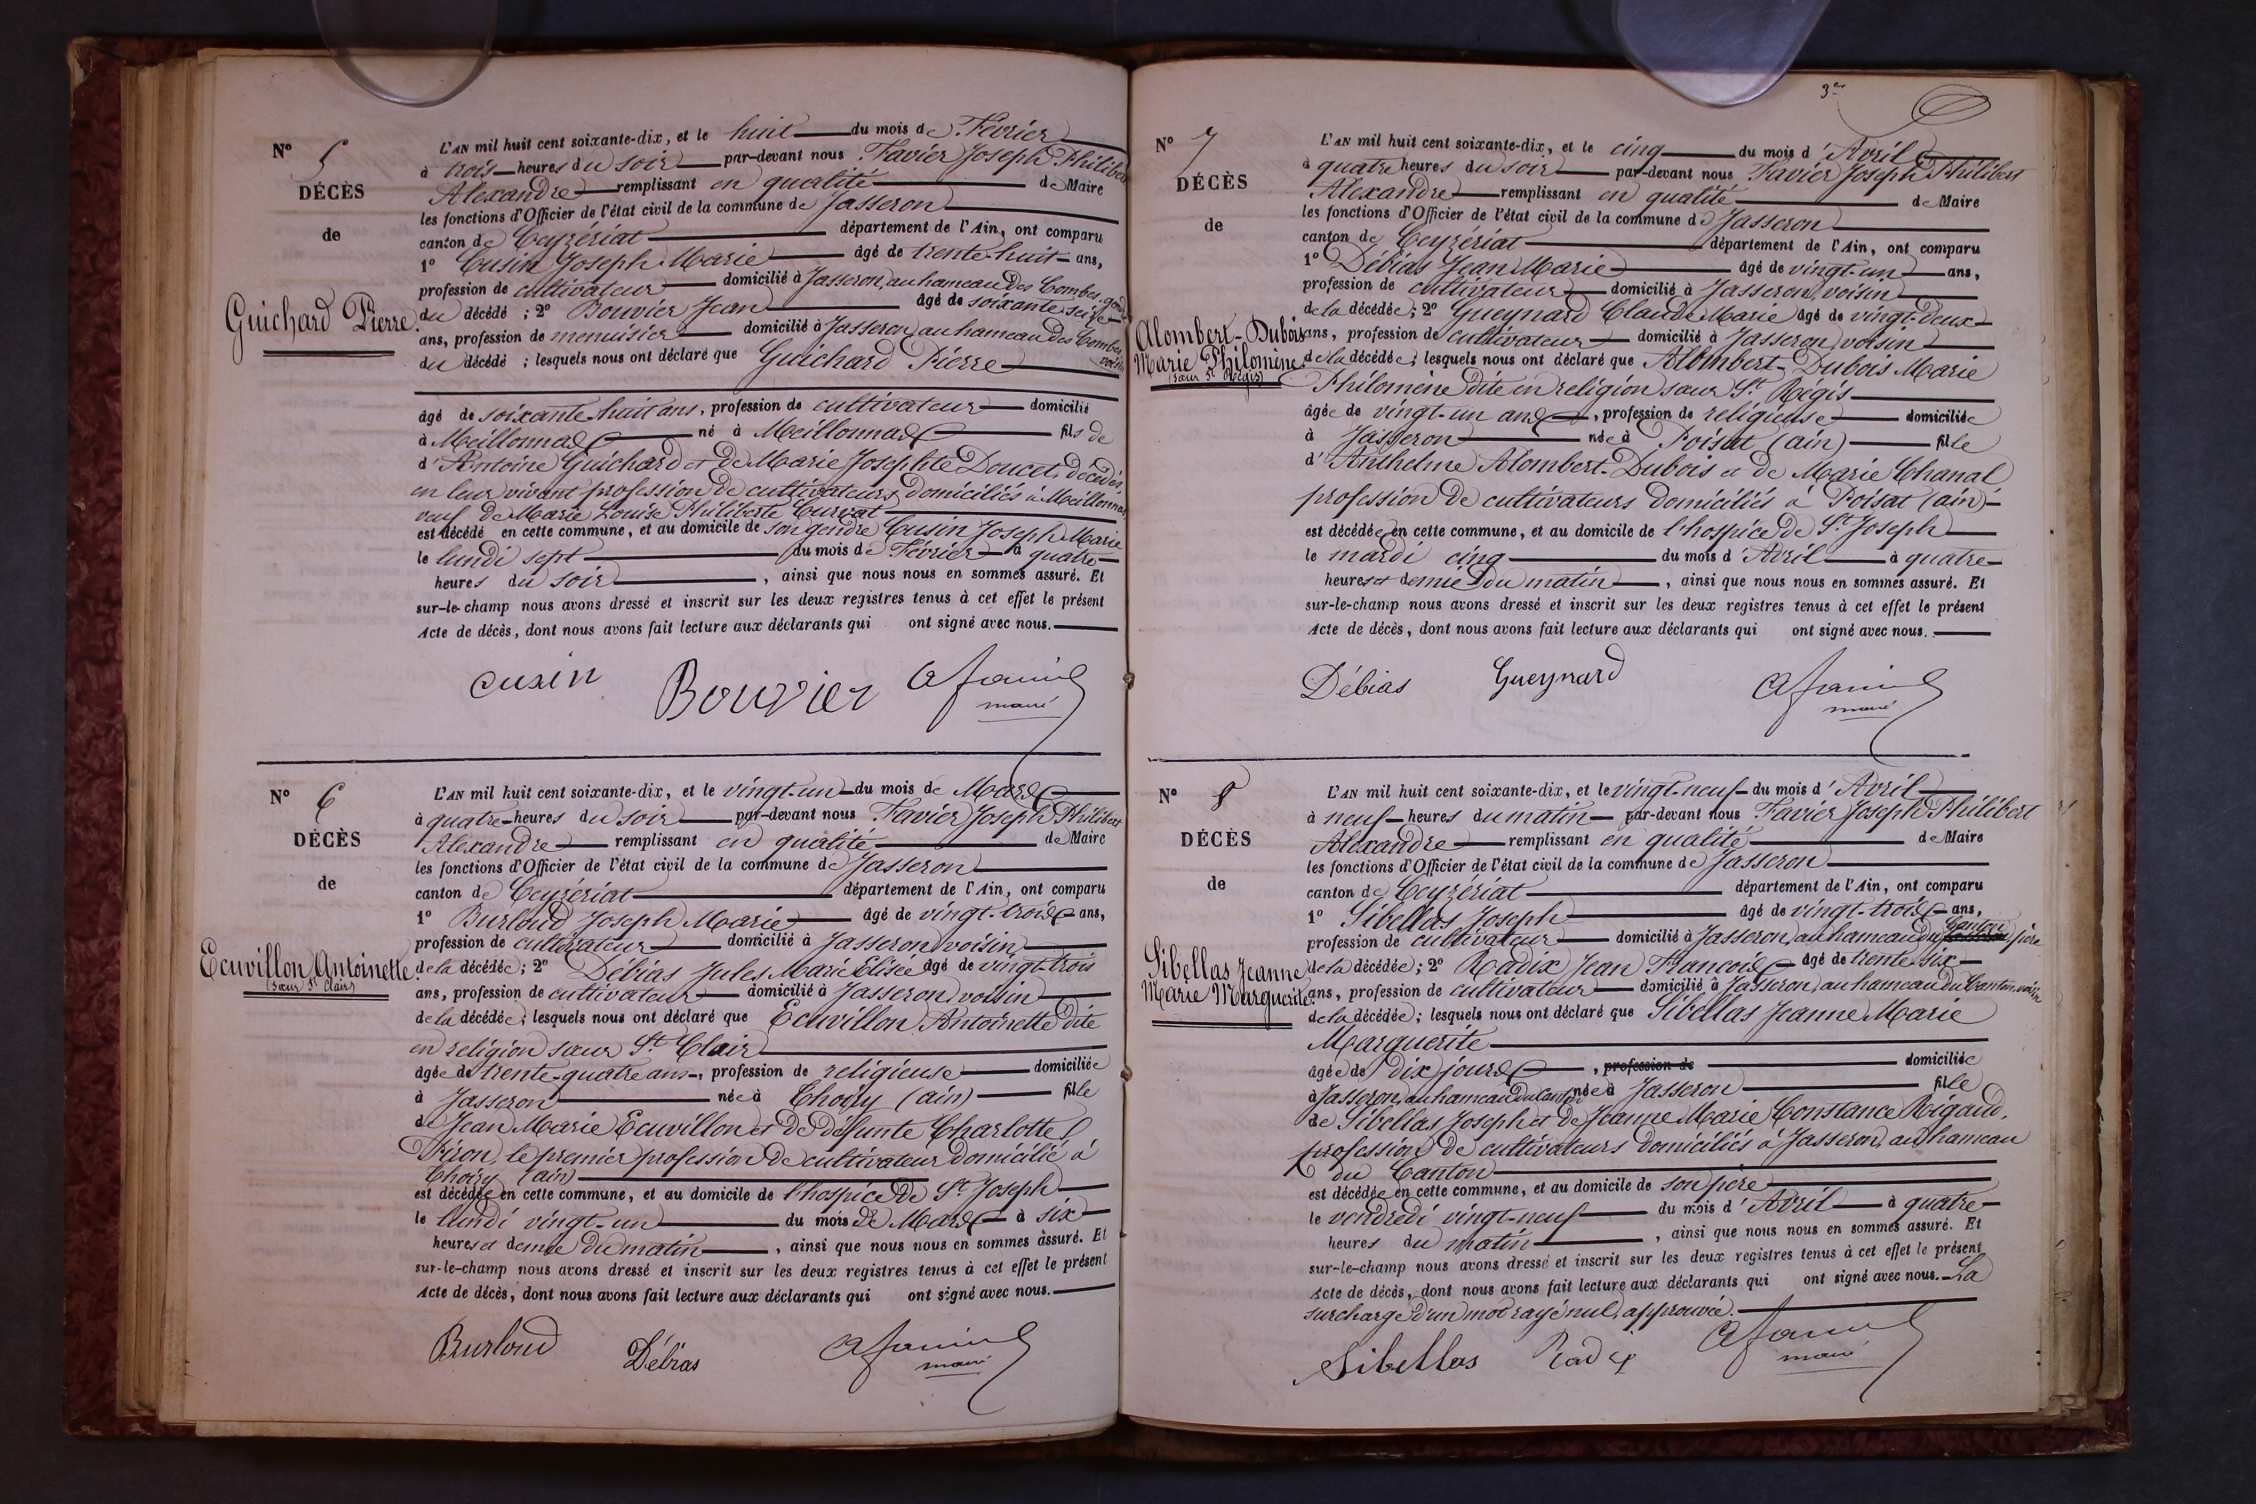 N° 5
DÉCÈS
de
Guichard Pierre.
L'AN mil huit cent soixante-dix, et le huit du mois de Février
à trois heures du soir par-devant nous Favier Joseph Philibert
Alexandre remplissant en qualité de Maire
les fonctions d'Officier de l'état civil de la commune de Jasseron
canton de Ceyzériat département de l'Ain, ont comparu
1° Cusin Joseph Marie âgé de trente-huit ans,
profession de cultivateur domicilié à Jasseron, au hameau des Combes, gendre
du décédé ; 2° Bouvier Jean âgé de soixante seize
ans, profession de menuisier domicilié à Jasseron, au hameau des Combes, voisin
du décédé ; lesquels nous ont déclaré que Guichard Pierre
âgé de soixante-huit ans, profession de cultivateur domicilié
à Meillonnas né à Meillonnas fils de
d'Antoine Guichard et de Marie Josephte Doucet, décédés,
en leur vivant profession de cultivateurs domiciliés à Meillonnas,
veuf de Marie Louise Philiberte Curvat
est décédé en cette commune, et au domicile de son gendre Cusin Joseph Marie
le lundi sept du mois de Février à quatre
heures du soir, ainsi que nous nous en sommes assuré. Et
sur-le-champ nous avons dressé et inscrit sur les deux registres tenus à cet effet le présent
Acte de décès, dont nous avons fait lecture aux déclarants qui ont signé avec nous.
cusin Bouvier A favier
maire
N° 6
DÉCÈS
de
Ecuvillon Antoinette.
(sœur St Clair)
L'AN mil huit cent soixante-dix, et le vingt-un du mois de Mars
à quatre heures du soir par-devant nous Favier Joseph Philibert
Alexandre remplissant en qualité de Maire
les fonctions d'Officier de l'état civil de la commune de Jasseron
canton de Ceyzériat département de l'Ain, ont comparu
1° Burloud Joseph Marie âgé de vingt-trois ans,
profession de cultivateur domicilié à Jasseron, voisin
de la décédée ; 2° Débias Jules Marie Elisée âgé de vingt-trois
ans, profession de cultivateur domicilié à Jasseron, voisin
de la décédée ; lesquels nous ont déclaré que Ecuvillon Antoinette dite
en religion sœur St Clair
âgée de trente-quatre ans, profession de religieuse domiciliée
à Jasseron née à Choisy (ain) fille
de Jean Marie Ecuvillon et de défunte Charlotte
Piron, le premier profession de cultivateur domicilié à
Choisy (ain)
est décédée en cette commune, et au domicile de l'hospice de St Joseph
le lundi vingt-un du mois de Mars à six
heures et demie du matin, ainsi que nous nous en sommes assuré. Et
sur-le-champ nous avons dressé et inscrit sur les deux registres tenus à cet effet le présent
Acte de décès, dont nous avons fait lecture aux déclarants qui ont signé avec nous.
Burloud Débias A favier
maire
3e
N° 7
DÉCÈS
de
Alombert-Dubois
Marie Philomène.
(sœur St Régis)
L'AN mil huit cent soixante-dix, et le cinq du mois d'Avril
à quatre heures du soir par-devant nous Favier Joseph Philibert
Alexandre remplissant en qualité de Maire
les fonctions d'Officier de l'état civil de la commune de Jasseron
canton de Ceyzériat département de l'Ain, ont comparu
1° Débias Jean Marie âgé de vingt-un ans,
profession de cultivateur domicilié à Jasseron, voisin
de la décédée ; 2° Gueynard Claude Marie âgé de vingt-deux
ans, profession de cultivateur domicilié à Jasseron, voisin
de la décédée ; lesquels nous ont déclaré que Alombert-Dubois Marie
Philomène dite en religion sœur St Régis
âgée de vingt-un ans, profession de religieuse domiciliée
à Jasseron née à Poisat (ain) fille
d'Anthelme Alombert-Dubois et de Marie Chanal
profession de cultivateurs domiciliés à Poisat (ain)
est décédée en cette commune, et au domicile de l'hospice de St Joseph
le mardi cinq du mois d'Avril à quatre
heures et demie du matin, ainsi que nous nous en sommes assuré. Et
sur-le-champ nous avons dressé et inscrit sur les deux registres tenus à cet effet le présent
Acte de décès, dont nous avons fait lecture aux déclarants qui ont signé avec nous.
Débias Gueynard A favier
maire
N° 8
DÉCÈS
de
Sibellas Jeanne
Marie Marguerite.
L'AN mil huit cent soixante-dix, et le vingt-neuf du mois d'Avril
à neuf heures du matin par-devant nous Favier Joseph Philibert
Alexandre remplissant en qualité de Maire
les fonctions d'Officier de l'état civil de la commune de Jasseron
canton de Ceyzériat département de l'Ain, ont comparu
1° Sibellas Joseph âgé de vingt-trois ans,
profession de cultivateur domicilié à Jasseron, au hameau du Canton, père
de la décédée ; 2° Radix Jean François âgé de trente-six
ans, profession de cultivateur domicilié à Jasseron, au hameau du Canton, voisin
de la décédée ; lesquels nous ont déclaré que Sibellas Jeanne Marie
Marguerite
âgée de dix jours, profession de domiciliée
à Jasseron, au hameau du Canton née à Jasseron fille
de Sibellas Joseph et de Jeanne Marie Constance Rigaud,
profession de cultivateurs domiciliés à Jasseron, au hameau
du Canton
est décédée en cette commune, et au domicile de son père
le vendredi vingt-neuf du mois d'Avril à quatre
heures du matin, ainsi que nous nous en sommes assuré. Et
sur-le-champ nous avons dressé et inscrit sur les deux registres tenus à cet effet le présent
Acte de décès, dont nous avons fait lecture aux déclarants qui ont signé avec nous. La
surcharge d'un mot rayé nul, approuvée.
Sibellas Radix A favier
maire